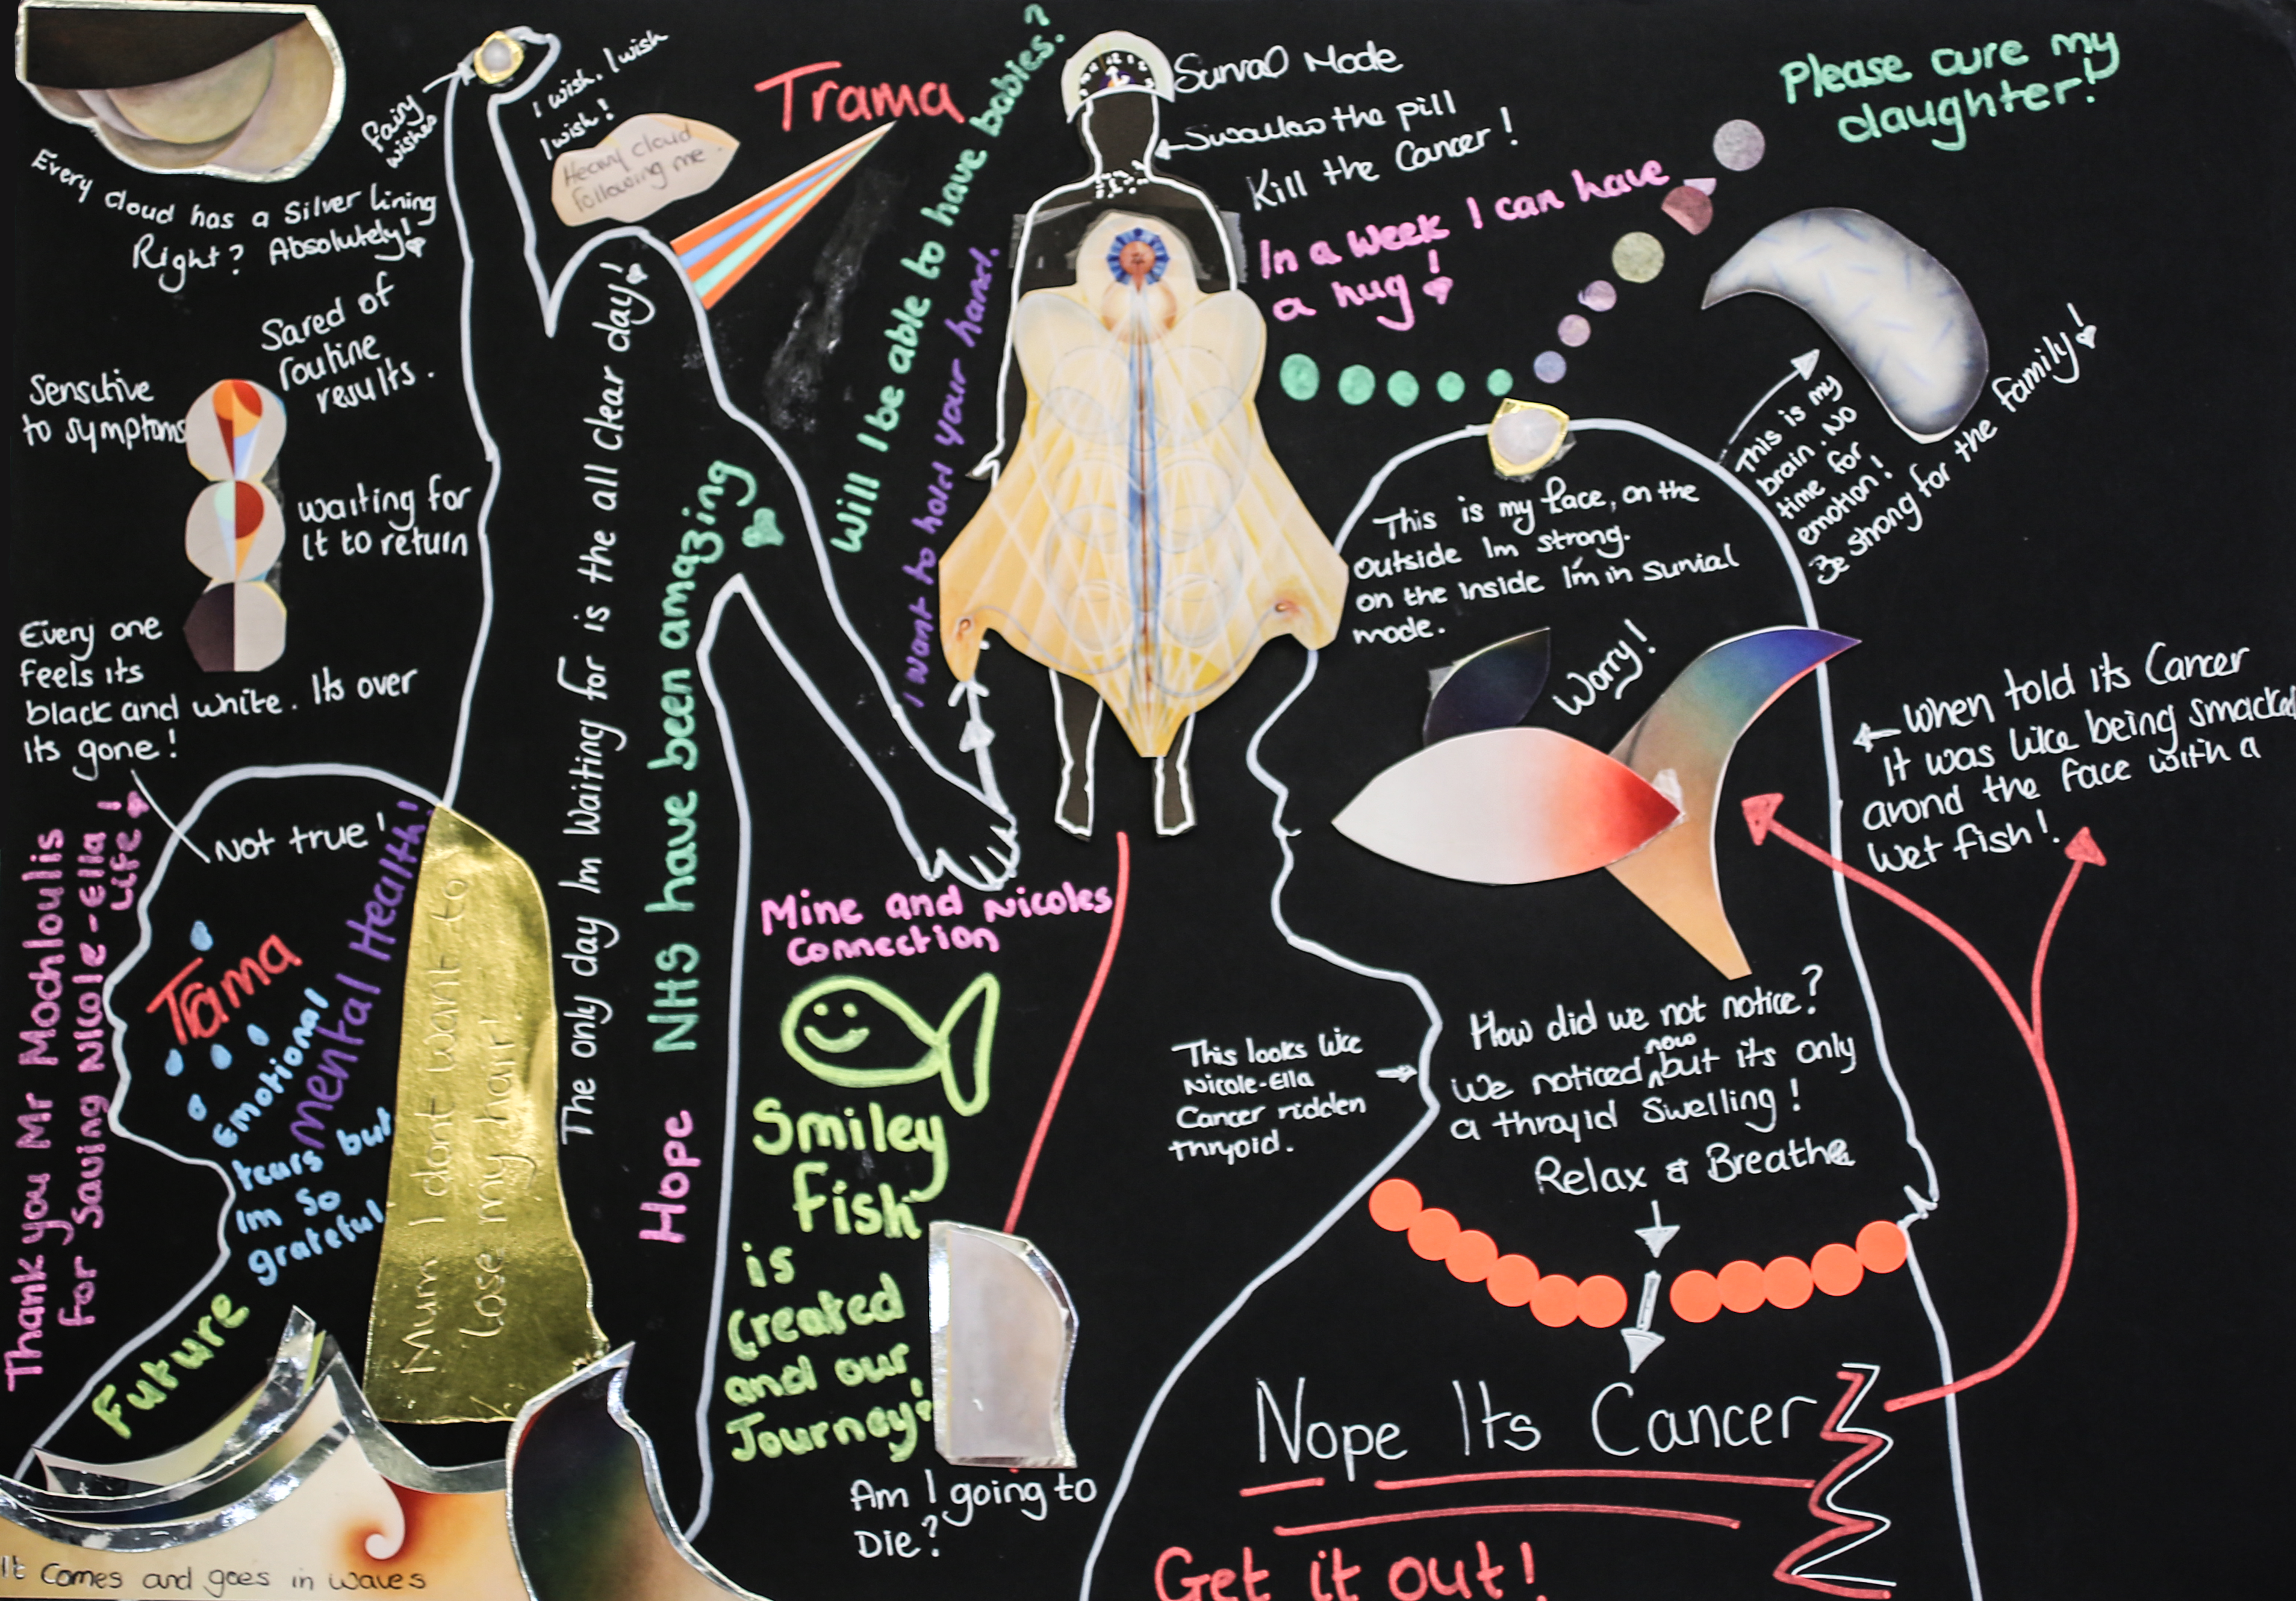 Every cloud has a Silver Lining
Right? Absolutely!
Fairy
wishes
I wish. I wish
I wish!
Heavy cloud
following me.
Trama
Will I be able to have babies?
I want to hold your hand.
Survial Mode
Swallow the pill
Kill the Cancer!
In a week I can have
a hug!
Please cure my
daughter!
This is my
brain. No
time for
emotion!
Be strong for the family!
Sared of
routine
results.
Sensitive
to symptoms
waiting for
it to return
Every one
feels its
black and white. Its over
its gone!
Not true!
Thank you Mr Mochloulis
for Saving Nicole-Ella
Life!
Trama
Emotional
tears but
Im so
grateful
mental Health!
Mum I dont want to
lose my hair!
Future
It comes and goes in waves
The only day Im waiting for is the all clear day!
Hope
NHS have been amazing
Mine and Nicoles
Connection
Smiley
Fish
is
Created
and our
Journey!
Am I going to
Die?
This is my face, on the
outside Im strong.
on the inside I'm in survial
mode.
Worry!
When told its Cancer
It was like being smacked
arond the face with a
wet fish!
This looks like
Nicole-Ella
Cancer ridden
thryoid.
How did we not notice?
We noticed now but its only
a thryiod swelling!
Relax & Breathe
Nope Its Cancer
Get it out!